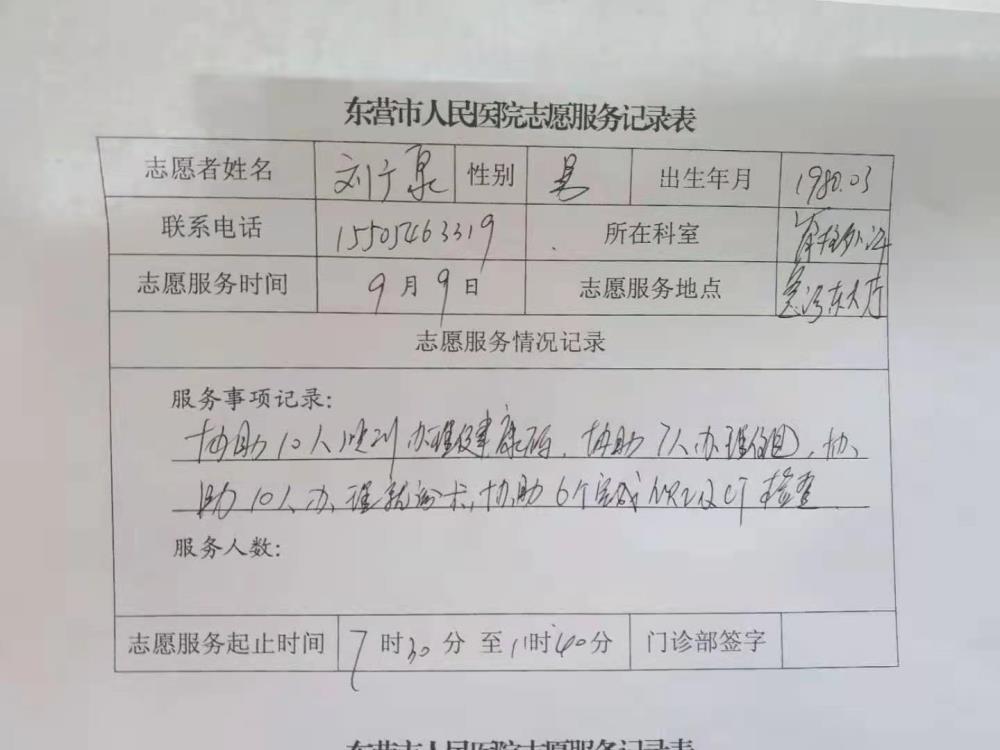 东营市人民医院志愿服务记录表
志愿者姓名 刘广泉 性别 男 出生年月 1980.03
联系电话 15505463319 所在科室 脊柱外科
志愿服务时间 9月9日 志愿服务地点 急诊东大厅
志愿服务情况记录
服务事项记录：
协助10人 办理健康码，协助7人办理 ，协
助10人办理就诊卡，协助6个完成MRI及CT检查
服务人数：
志愿服务起止时间 7时30分至11时40分 门诊部签字
东营市人民医院志愿服务记录表